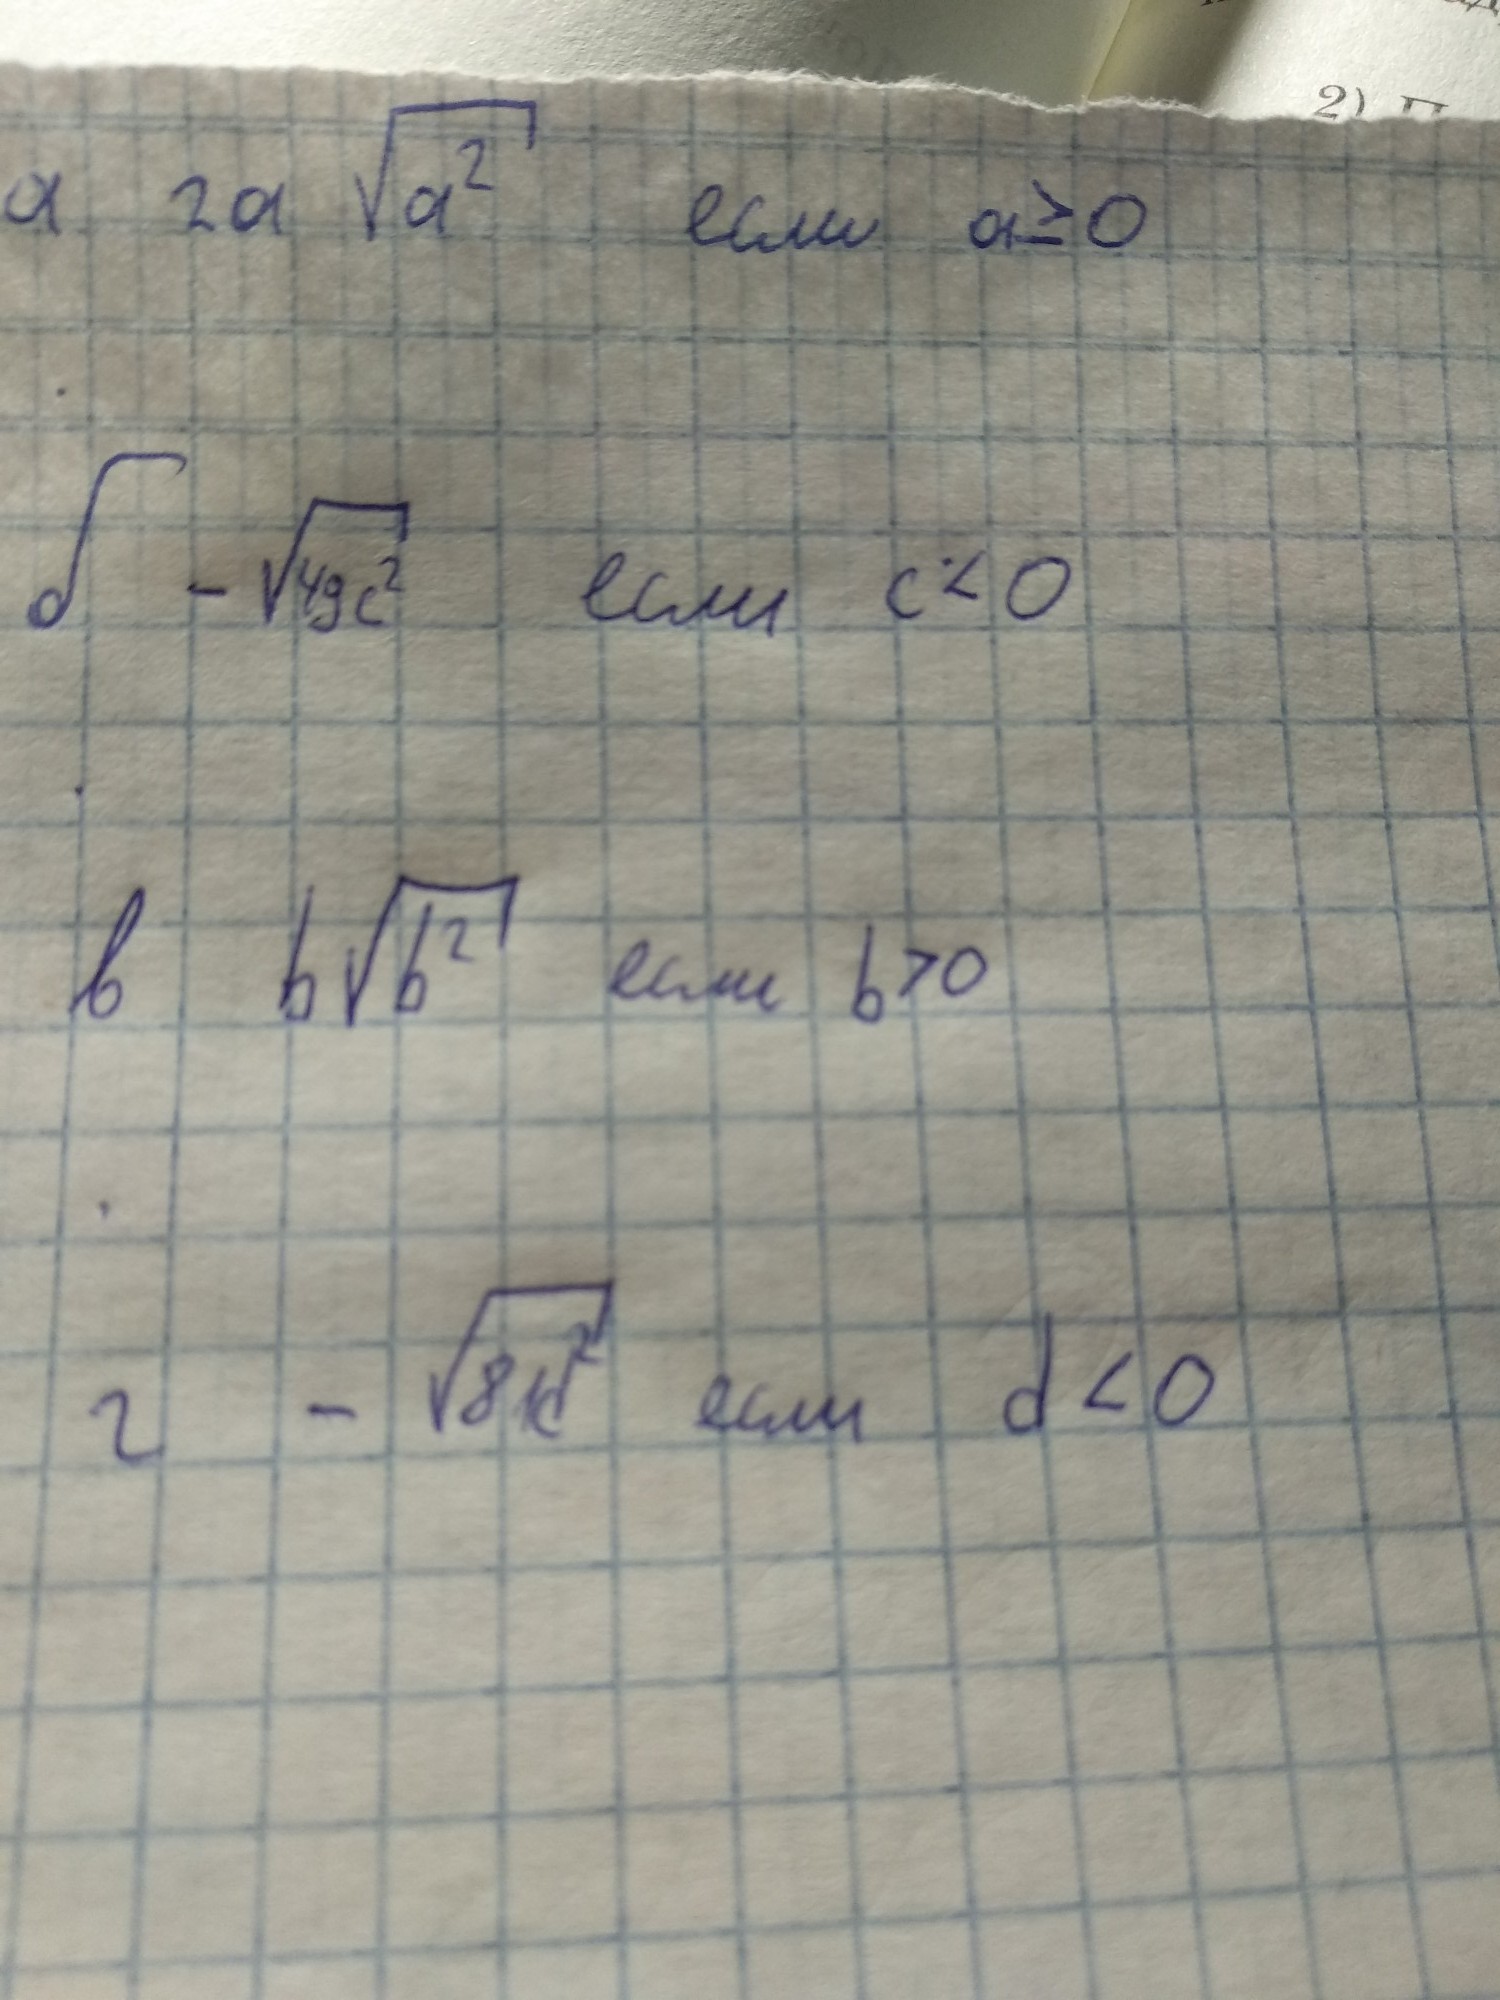 2) П
а 2a √a² если a≥0
б -√49c² если c<0
в b√b² если b>0
г -√81d² если d<0